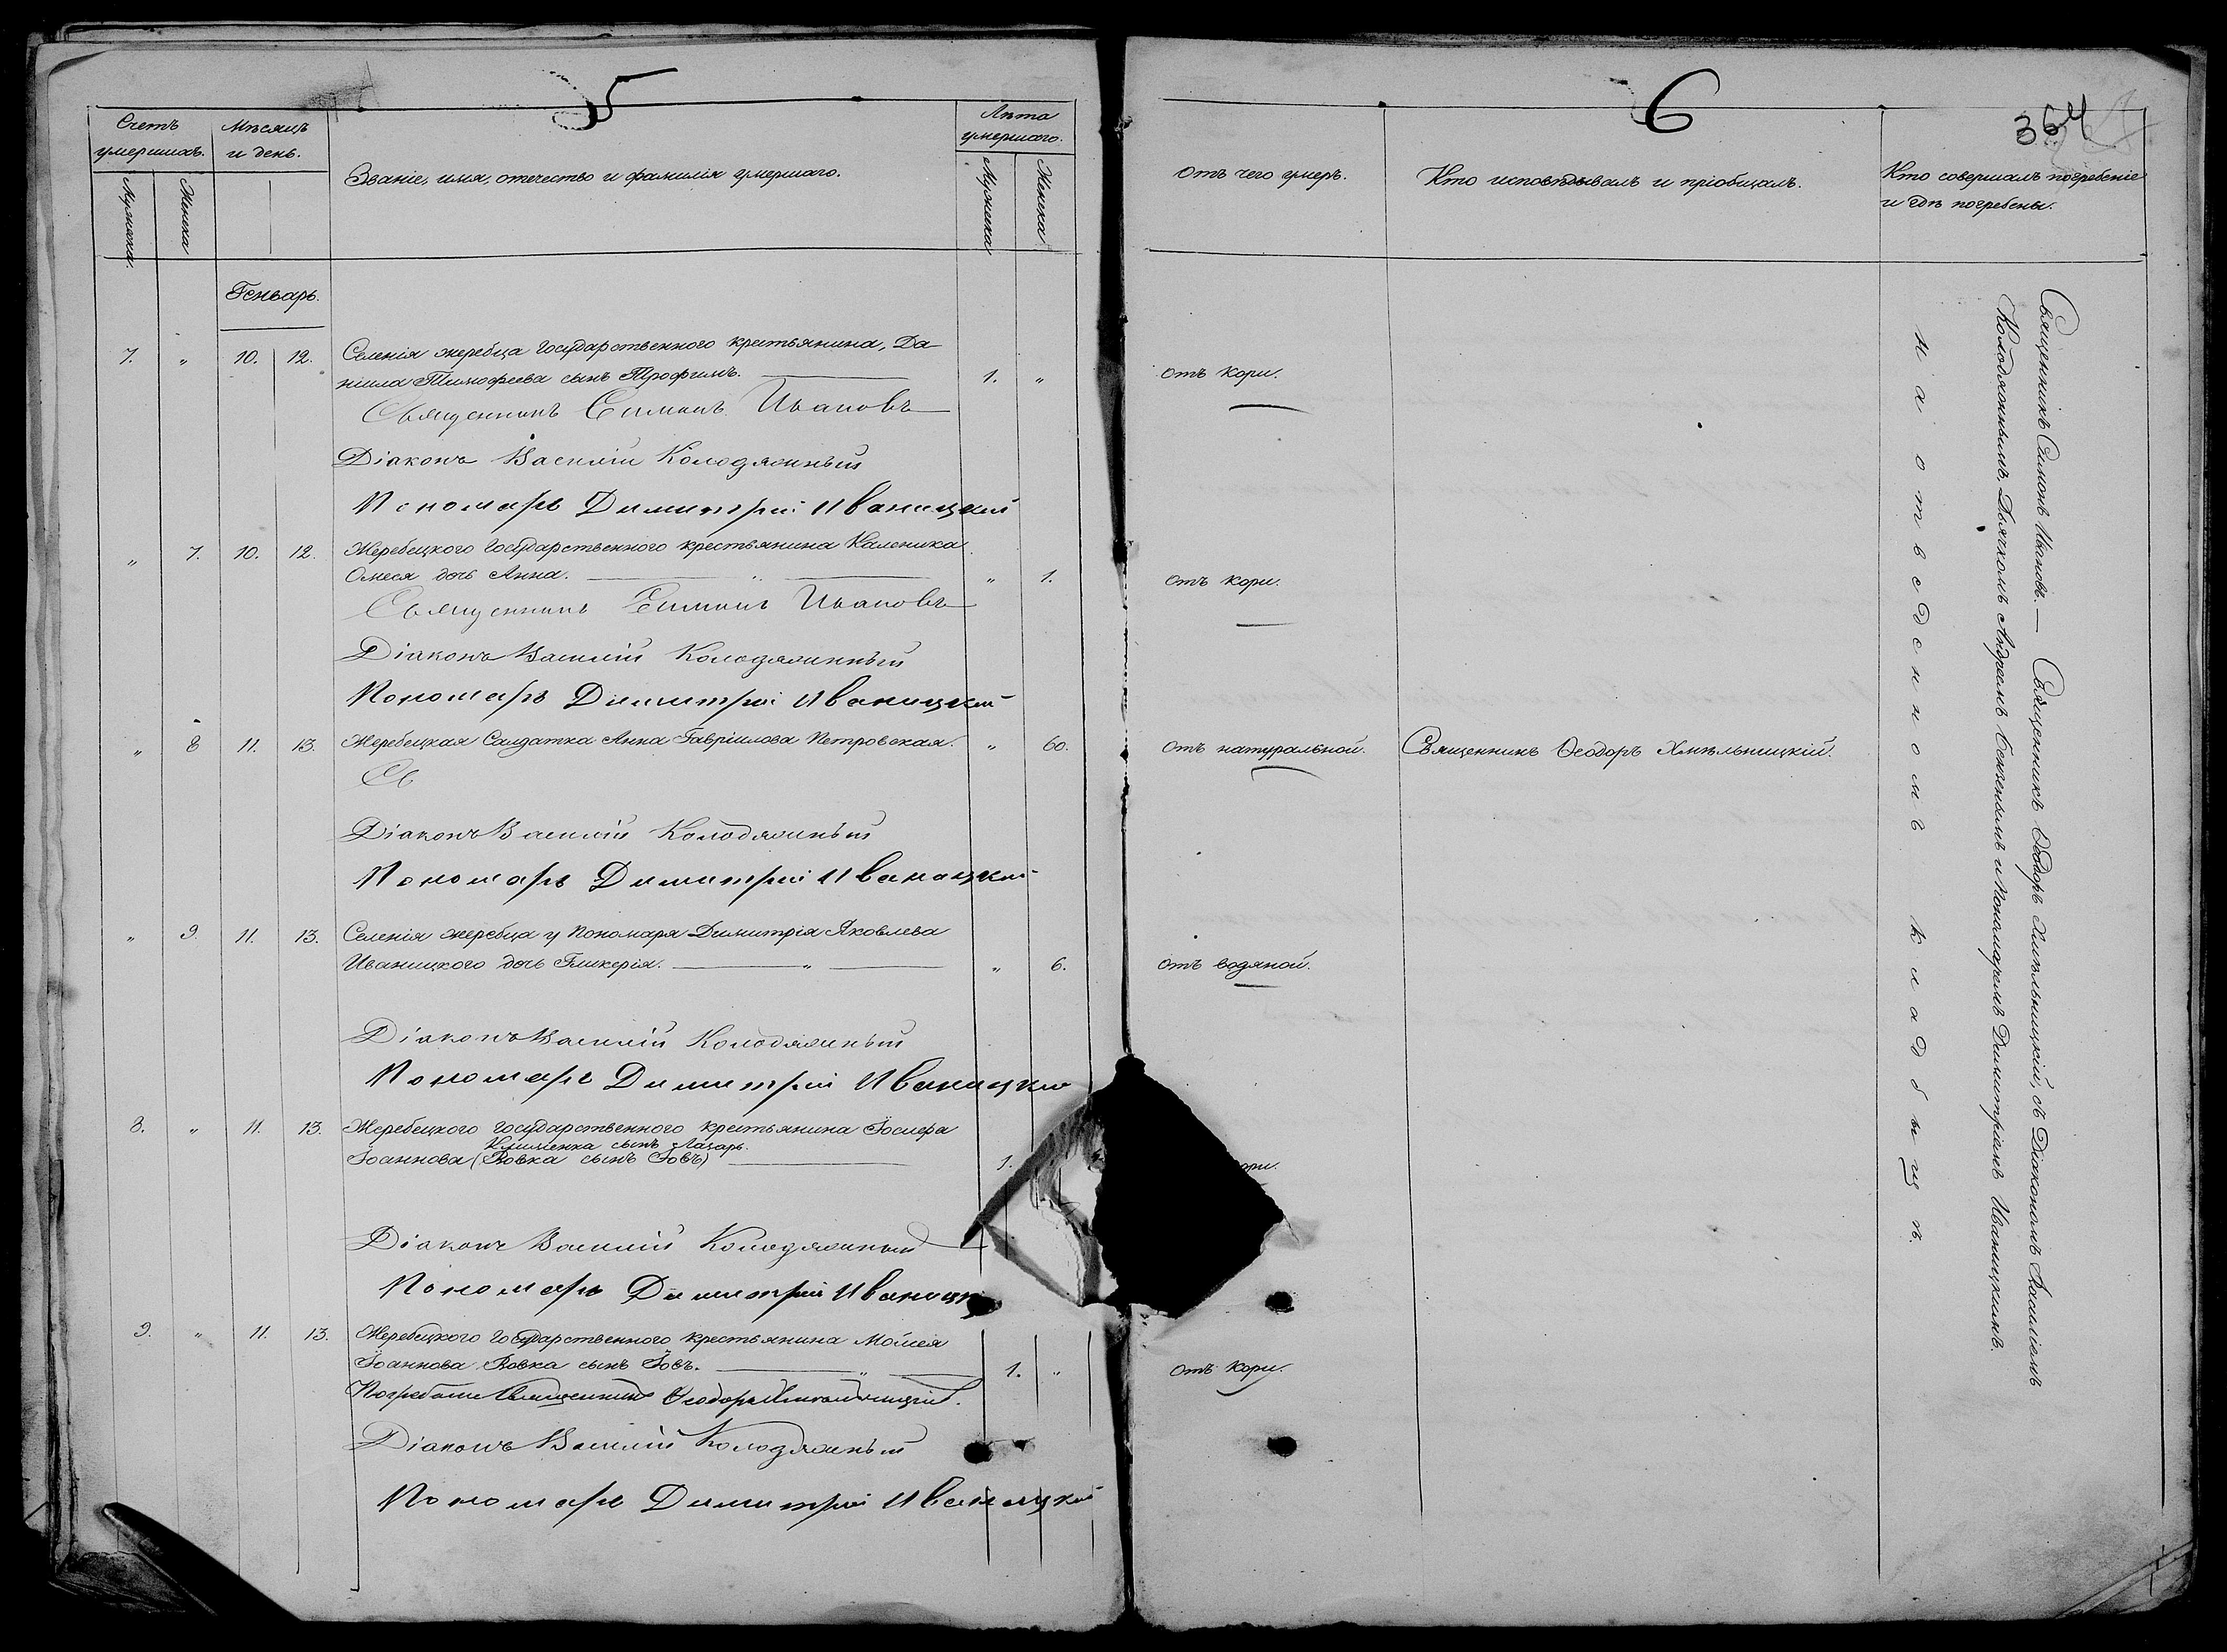 5
Счетъ умершихъ.
Мѣсяцъ и день.
Званіе, имя, отечество и фамилія умершаго.
Лѣта умершаго.
Мужеска.
Женска
Мужеска
Женска
Генварь.
7. „ 10. 12. Селенія жеребца государственного крестьянина, Да-
ніила Тимофеева сынъ Трофимъ. 1. „
Священникъ Симонъ Ивановъ
Діаконъ Василій Колодяжный
Пономарь Димитрій Иваницкій
„ 7. 10. 12. Жеребецкого государственного крестьянина Каленика
Омеся дочь Анна. „ 1.
Священникъ Симонъ Ивановъ
Діаконъ Василій Колодяжинный
Пономарь Димитрій Иваницкій
„ 8 11. 13. Жеребецкая Салдатка Анна Гавріилова Петровская. „ 60.
Св
Діаконъ Василій Колодяжиный
Пономарь Димитрій Иваницкій
„ 9. 11. 13. Селенія жеребца у Пономаря Димитрія Яковлева
Иваницкого дочь Гликерія. „ 6.
Діаконъ Василій Колодяжиный
Пономарь Димитрій Иваницкій
8. „ 11. 13. Жеребецкого государственного крестьянина Іосифа
Клименка сынъ Лазарь.
Іоаннова (Вовка сынъ Іовъ) 1.
Діаконъ Василій Колодяжный
Пономарь Димитрій Иваницк
9. „ 11. 13. Жеребецкого государственного крестьянина Мойсея
Іоаннова Вовка сынъ Іовъ. 1. „
Погребали Священникъ Ѳеодоръ Хмѣльницкій.
Діаконъ Василій Колодяжный
Пономарь Димитрій Иваницкій
6
364
Отъ чего умеръ.
Кто исповѣдывалъ и пріобщалъ.
Кто совершалъ погребеніе
и гдѣ погребены.
Отъ кори.
Отъ кори.
Отъ натуральной. Священникъ Ѳеодоръ Хмѣльницкій.
Отъ водяной.
ори.
Отъ кори.
Священникъ Симонъ Ивановъ. — Священникъ Ѳеодоръ Хмѣльницкій, съ Діакономъ Василіемъ
Колодяжнымъ, Дьячкомъ Андреемъ и Пономаремъ Димитріемъ Иваницкимъ.
на отведенномъ кладбищѣ.